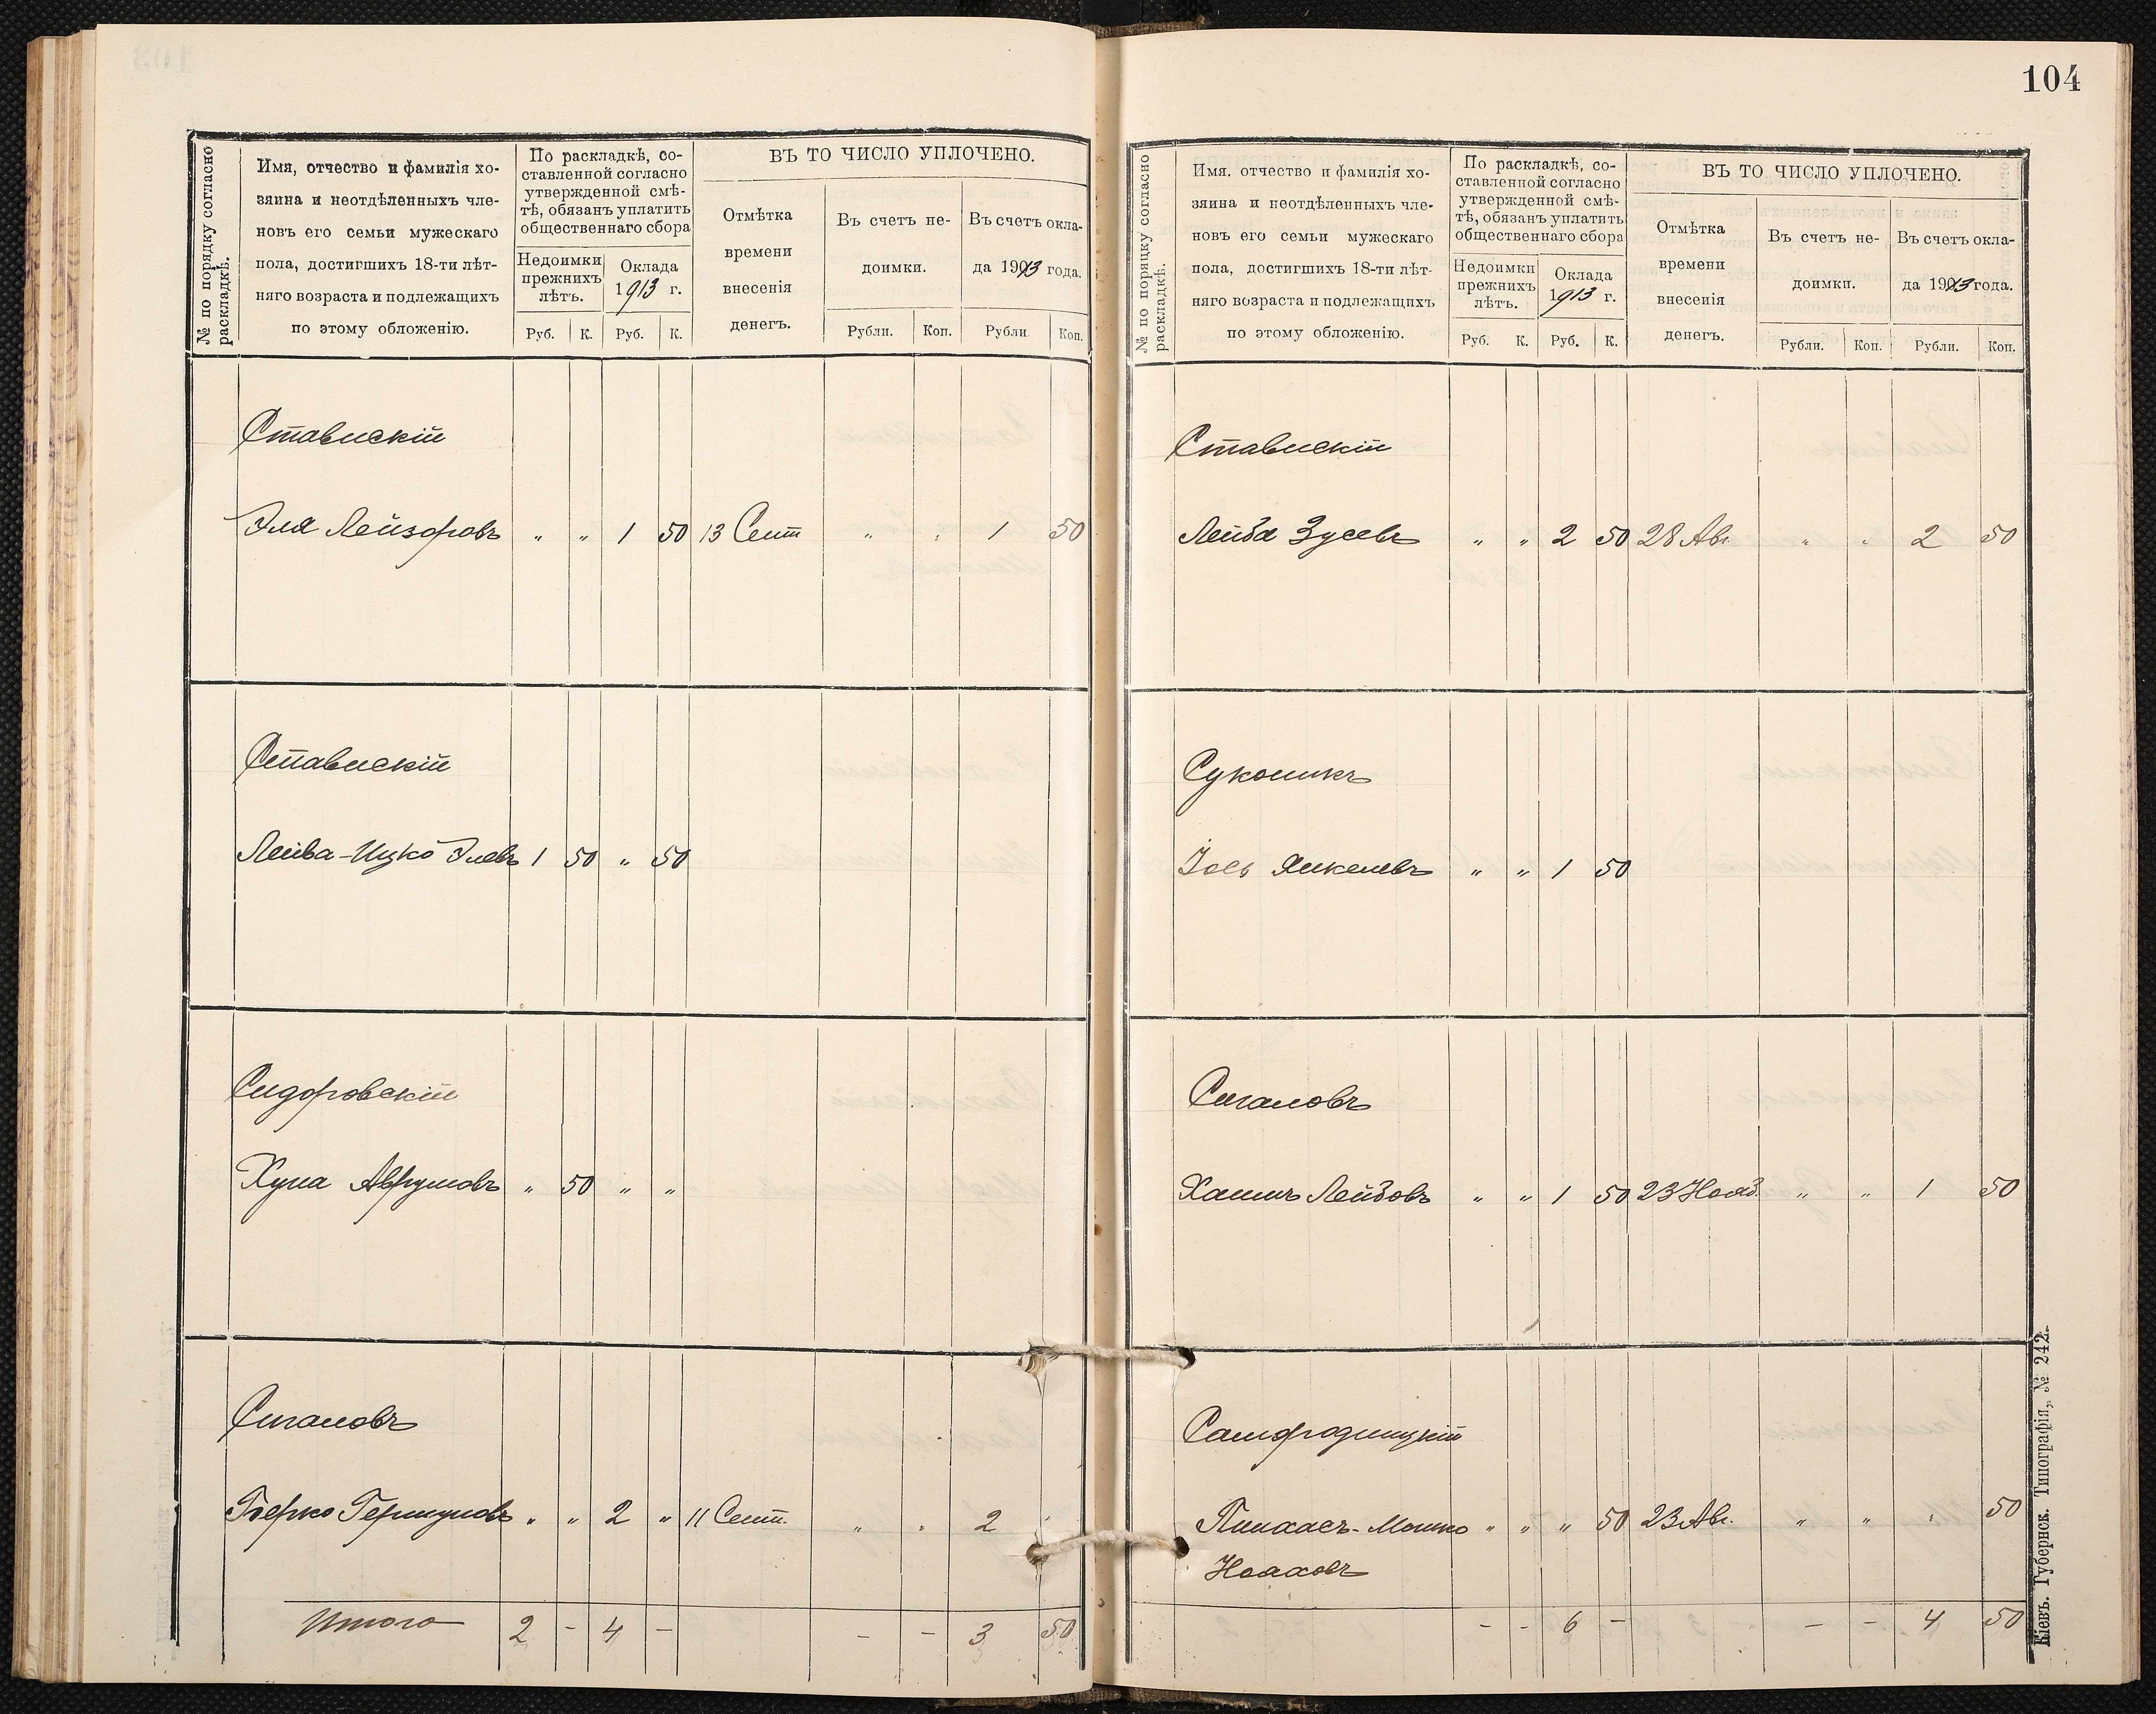 № по порядку согласно
раскладкѣ.
Имя, отчество и фамилія хо-
зяина и неотдѣленныхъ чле-
новъ его семьи мужескаго
пола, достигшихъ 18-ти лѣт-
няго возраста и подлежащихъ
по этому обложенію.
По раскладкѣ, со-
ставленной согласно
утвержденной смѣ-
тѣ, обязанъ уплатить
общественнаго сбора
Недоимки
прежнихъ
лѣтъ.
Оклада
1913 г.
Руб. К. Руб. К.
ВЪ ТО ЧИСЛО УПЛОЧЕНО.
Отмѣтка
времени
внесенія
денегъ.
Въ счетъ не-
доимки.
Въ счетъ окла-
да 1913 года.
Рубли. Коп. Рубли. Коп.
Ставискій
Эля Лейзоровъ " " 1 50 13 Сент " " 1 50
Ставискій
Лейба-Ицко Элевъ 1 50 " 50
Сидоровскій
Хуна Аврумовъ " 50 " "
Сигаловъ
Берко Гершуновъ " " 2 " 11 Сент. " " 2 "
Итого 2 - 4 - - - 3 50
104
№ по порядку согласно
раскладкѣ.
Имя, отчество и фамилія хо-
зяина и неотдѣленныхъ чле-
новъ его семьи мужескаго
пола, достигшихъ 18-ти лѣт-
няго возраста и подлежащихъ
по этому обложенію.
По раскладкѣ, со-
ставленной согласно
утвержденной смѣ-
тѣ, обязанъ уплатить
общественнаго сбора
Недоимки
прежнихъ
лѣтъ.
Оклада
1913 г.
Руб. К. Руб. К.
ВЪ ТО ЧИСЛО УПЛОЧЕНО.
Отмѣтка
времени
внесенія
денегъ.
Въ счетъ не-
доимки.
Въ счетъ окла-
да 1913 года.
Рубли. Коп. Рубли. Коп.
Ставискій
Лейба Зусевъ " " 2 50 28 Авг. " " 2 50
Сукошкъ
Іось Янкелевъ " " 1 50
Сигаловъ
Хаимъ Лейбовъ " " 1 50 23 Нояб. " " 1 50
Самородицкій
Пинхасъ-Мошко " " " 50 23 Авг. " " " 50
Ноаховъ
- - 6 - - - 4 50
Кіевъ. Губернск. Типографія, № 242.